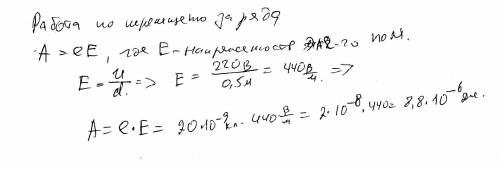 Работа по перемещ. заряда
A = eE, где E - напряженность эл-го поля.
E = u/d => E = 220В/0,5м = 440 В/м =>
A = e·E = 20·10⁻⁹кл · 440 В/м = 2·10⁻⁸·440 = 8,8·10⁻⁶ Дж.